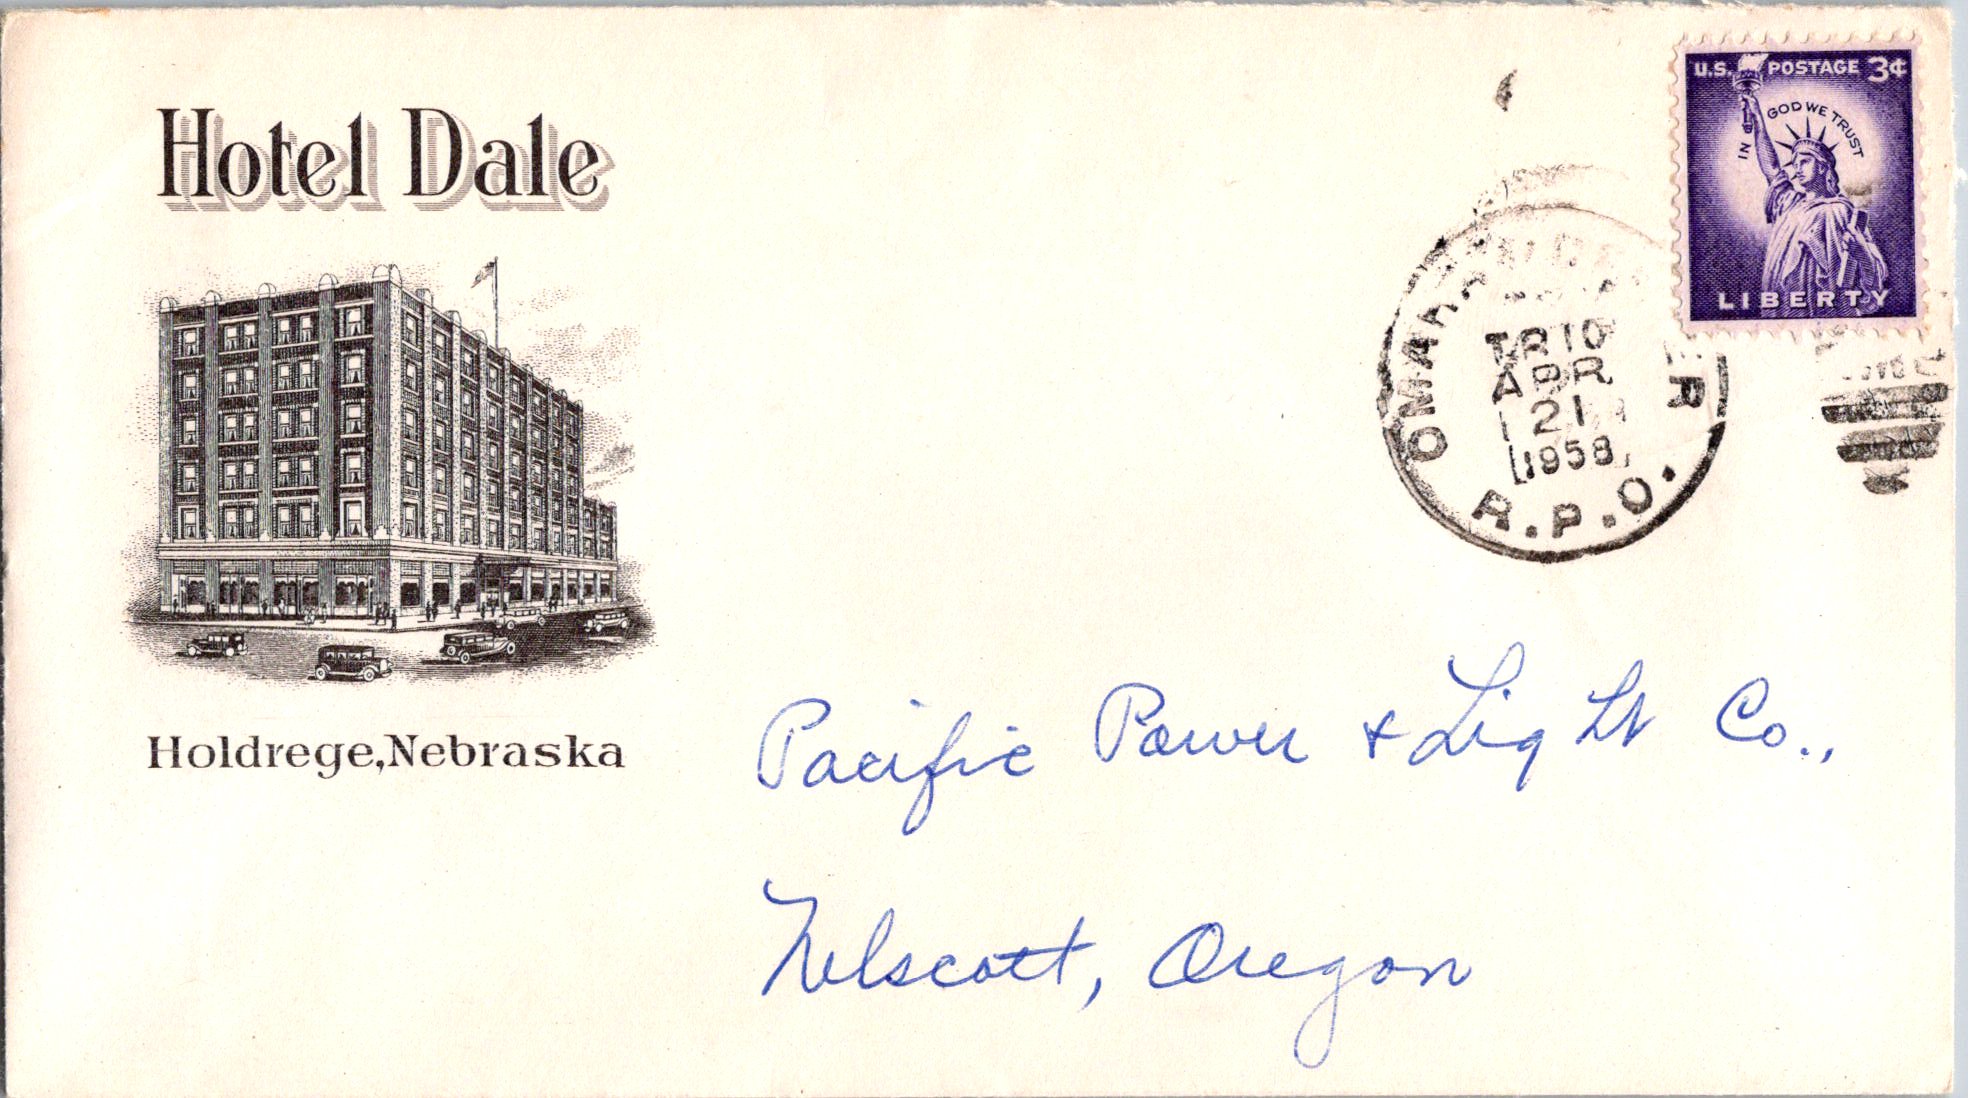 Hotel Dale
Holdrege, Nebraska
U.S. POSTAGE 3¢
IN GOD WE TRUST
LIBERTY
OMAHA
TR 10
APR
21
1958
R.P.O.
Pacific Power & Light Co.,
Nelscott, Oregon